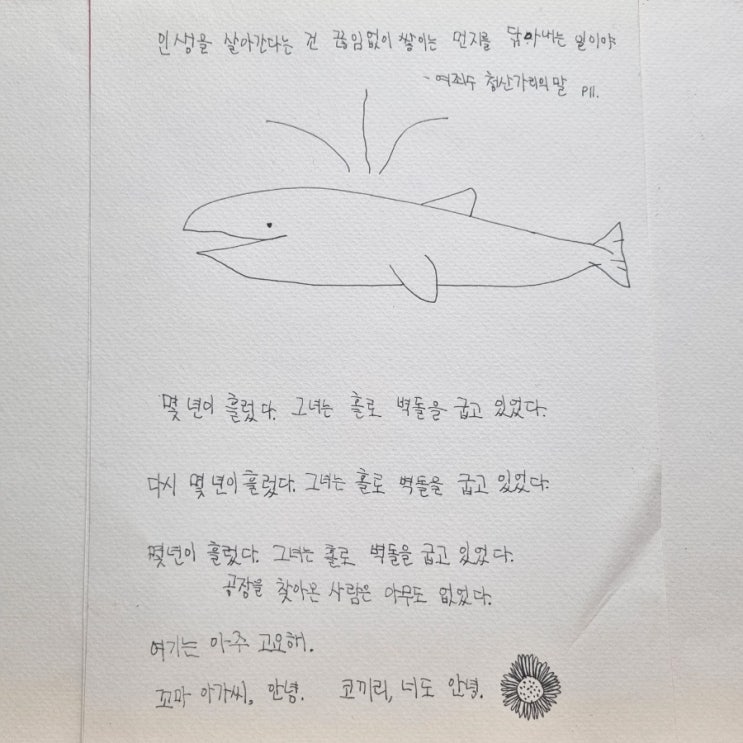 인생을 살아간다는 건 끊임없이 쌓이는 먼지를 닦아내는 일이야
- 여죄수 청산가리의 말 P11.
몇 년이 흘렀다. 그녀는 홀로 벽돌을 굽고 있었다.
다시 몇 년이 흘렀다. 그녀는 홀로 벽돌을 굽고 있었다.
몇년이 흘렀다. 그녀는 홀로 벽돌을 굽고 있었다.
공장을 찾아온 사람은 아무도 없었다.
여기는 아주 고요해.
꼬마 아가씨, 안녕. 코끼리, 너도 안녕.